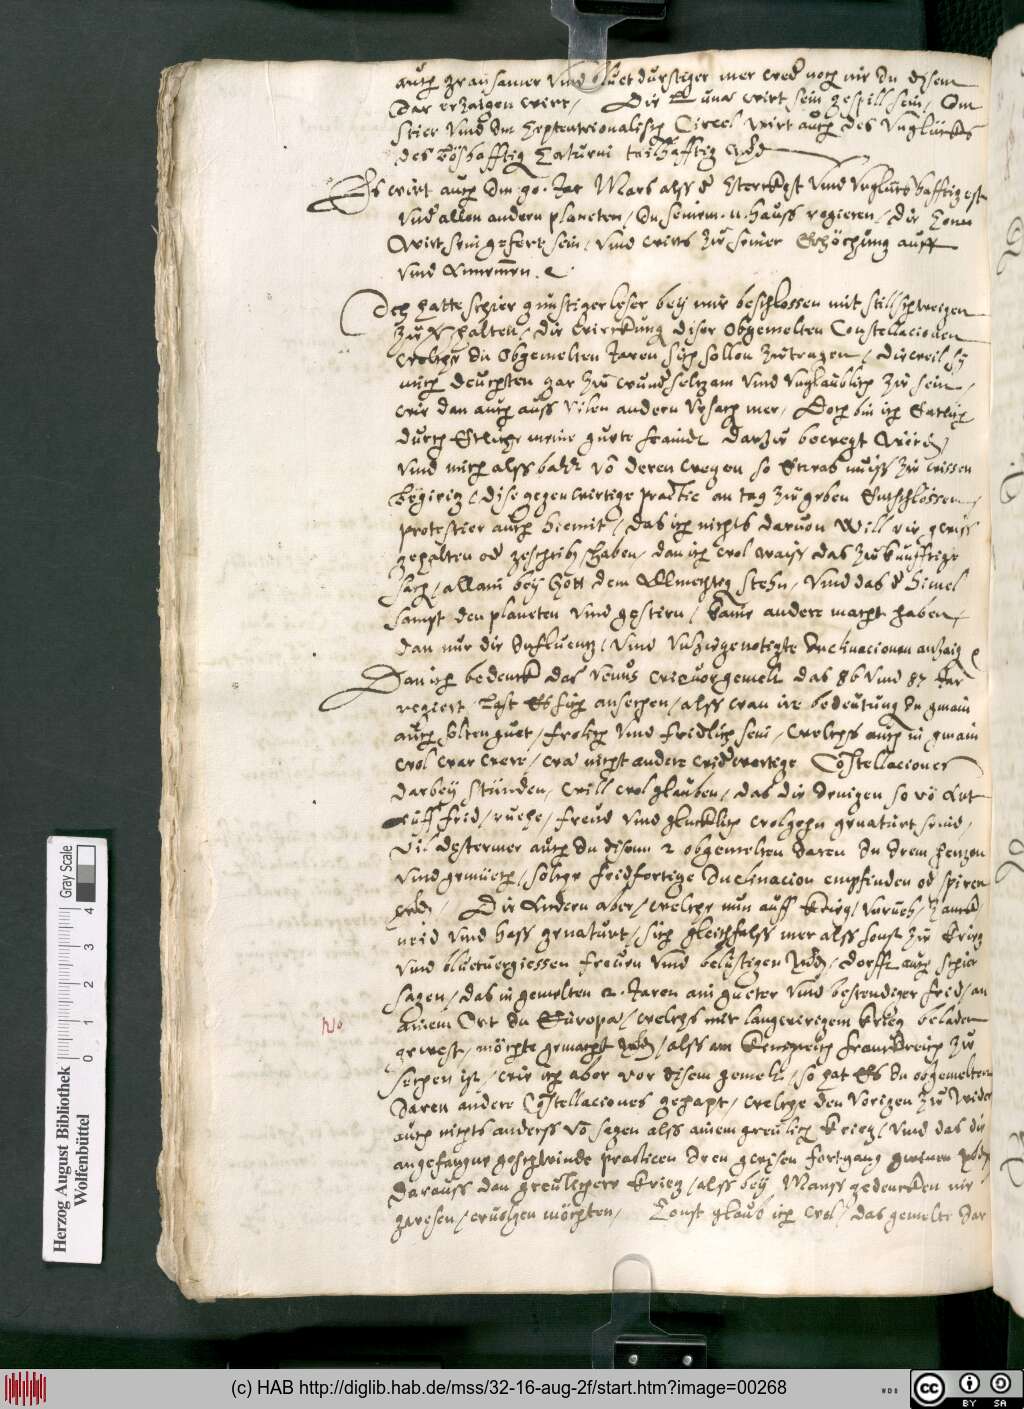 auch grausamer und bluetdurstiger mer wed noch nie In disem
Jar erzaigen wirt / Die Luna wirt sein gesell sein / Im
Stier und Im Septentrionalisch Circel wirt auch des Unglückhs
des böshafftig Saturni tailhafftig wed
Es wirt auch Im 90. Jar Mars alss d sterckhst und unglückhafftigest
und allen andern planeten / In seinem 11 hauss regieren / die Sonn
wirt sein gefert sein / und wirts zu seiner Erhöchung auff
und Annemen.
Ich hatte schier gunstiger leser bey mir beschlossen mit stillschweigen
zu halten / die wirckhung diser Obgemelten Constellacionen
welche In Obgemelten Jaren sich sollen zutragen / dieweil sy
mich deuchten gar zu wunderseltzam und unglaublich zu sein /
wie dan auch auss vilen andern Ursach mer / Doch bin ich
durch Etliche meine guete freindt darzu bewegt word
und mich alss baldt von deren wegen so Etwas muess zu wissen
begirig / dise gegenwirtige practic an tag zu geben Entschlossen /
protestier auch hiemit / das ich nichts daruon will gewiss
gehalten od geschrib haben / dan ich wol waiss das zukunfftige
sach / allain bey Gott dem Allmechtig stehn / Und das d himel
sampt den planeten und gestirn / kaine andere macht haben /
dan nur die Influentz / und unbezwungenotigte Inclinacionen anzaig
Dan ich bedenck das Venus wie vorgemelt das 86 und 87 Jar
regiert lest Es sich ansechen / alss wan ire bedeutung In gmain
auch solten guet / frolich und fridlich sein / welches auch in gmain
wol war were / wa nicht andere widerwertige Constellaciones
darbey stünden / will wol glauben / das die Jenigen so von Art
auff frid / ruehe / freud und glucklich wolgehn genaturt seind /
vil desterme auch In disenn 2 obgemelten Jaren In Irem hertzen
und gemüeth / solche fridfertige Inclinacion empfinden od spiren
wed / Die Andern aber / welche nun auff Krieg / Unrueh / Zanckh
neid und hass genaturt / sich gleichfalss mer alss sonst zu Krieg
und bluetuergiessen freuen und belustigen wed / dorfft auch schier
sagen / das in gemelten 2. Jaren ain gueter und bestendiger frid / an
ainem Ort In Europa / welches mit langwirigem Krieg beladen
gewest / möchte gemacht wed / alss am Kenigreich Franckreich zu
sechen ist / wie ich aber vor disem gemelt / so hat Es In obgemelten
Jaren andere Constellaciones gehapt / welche den vorigen zu wider
auch nichts anderss von sagen alss ainem greulich Krieg / und das die
angefangne geschwinde practicen Iren gewisen fortgang gwinen
Darauss dan greulichere Krieg / alss bey Manss gedencken nie
gewesen / eruolgen möchten / Sonst glaub ich wol / das gemelte Jar
No
Herzog August Bibliothek
Wolfenbüttel
0 1 2 3 4
Gray Scale
(c) HAB http://diglib.hab.de/mss/32-16-aug-2f/start.htm?image=00268
WDB
cc BY SA